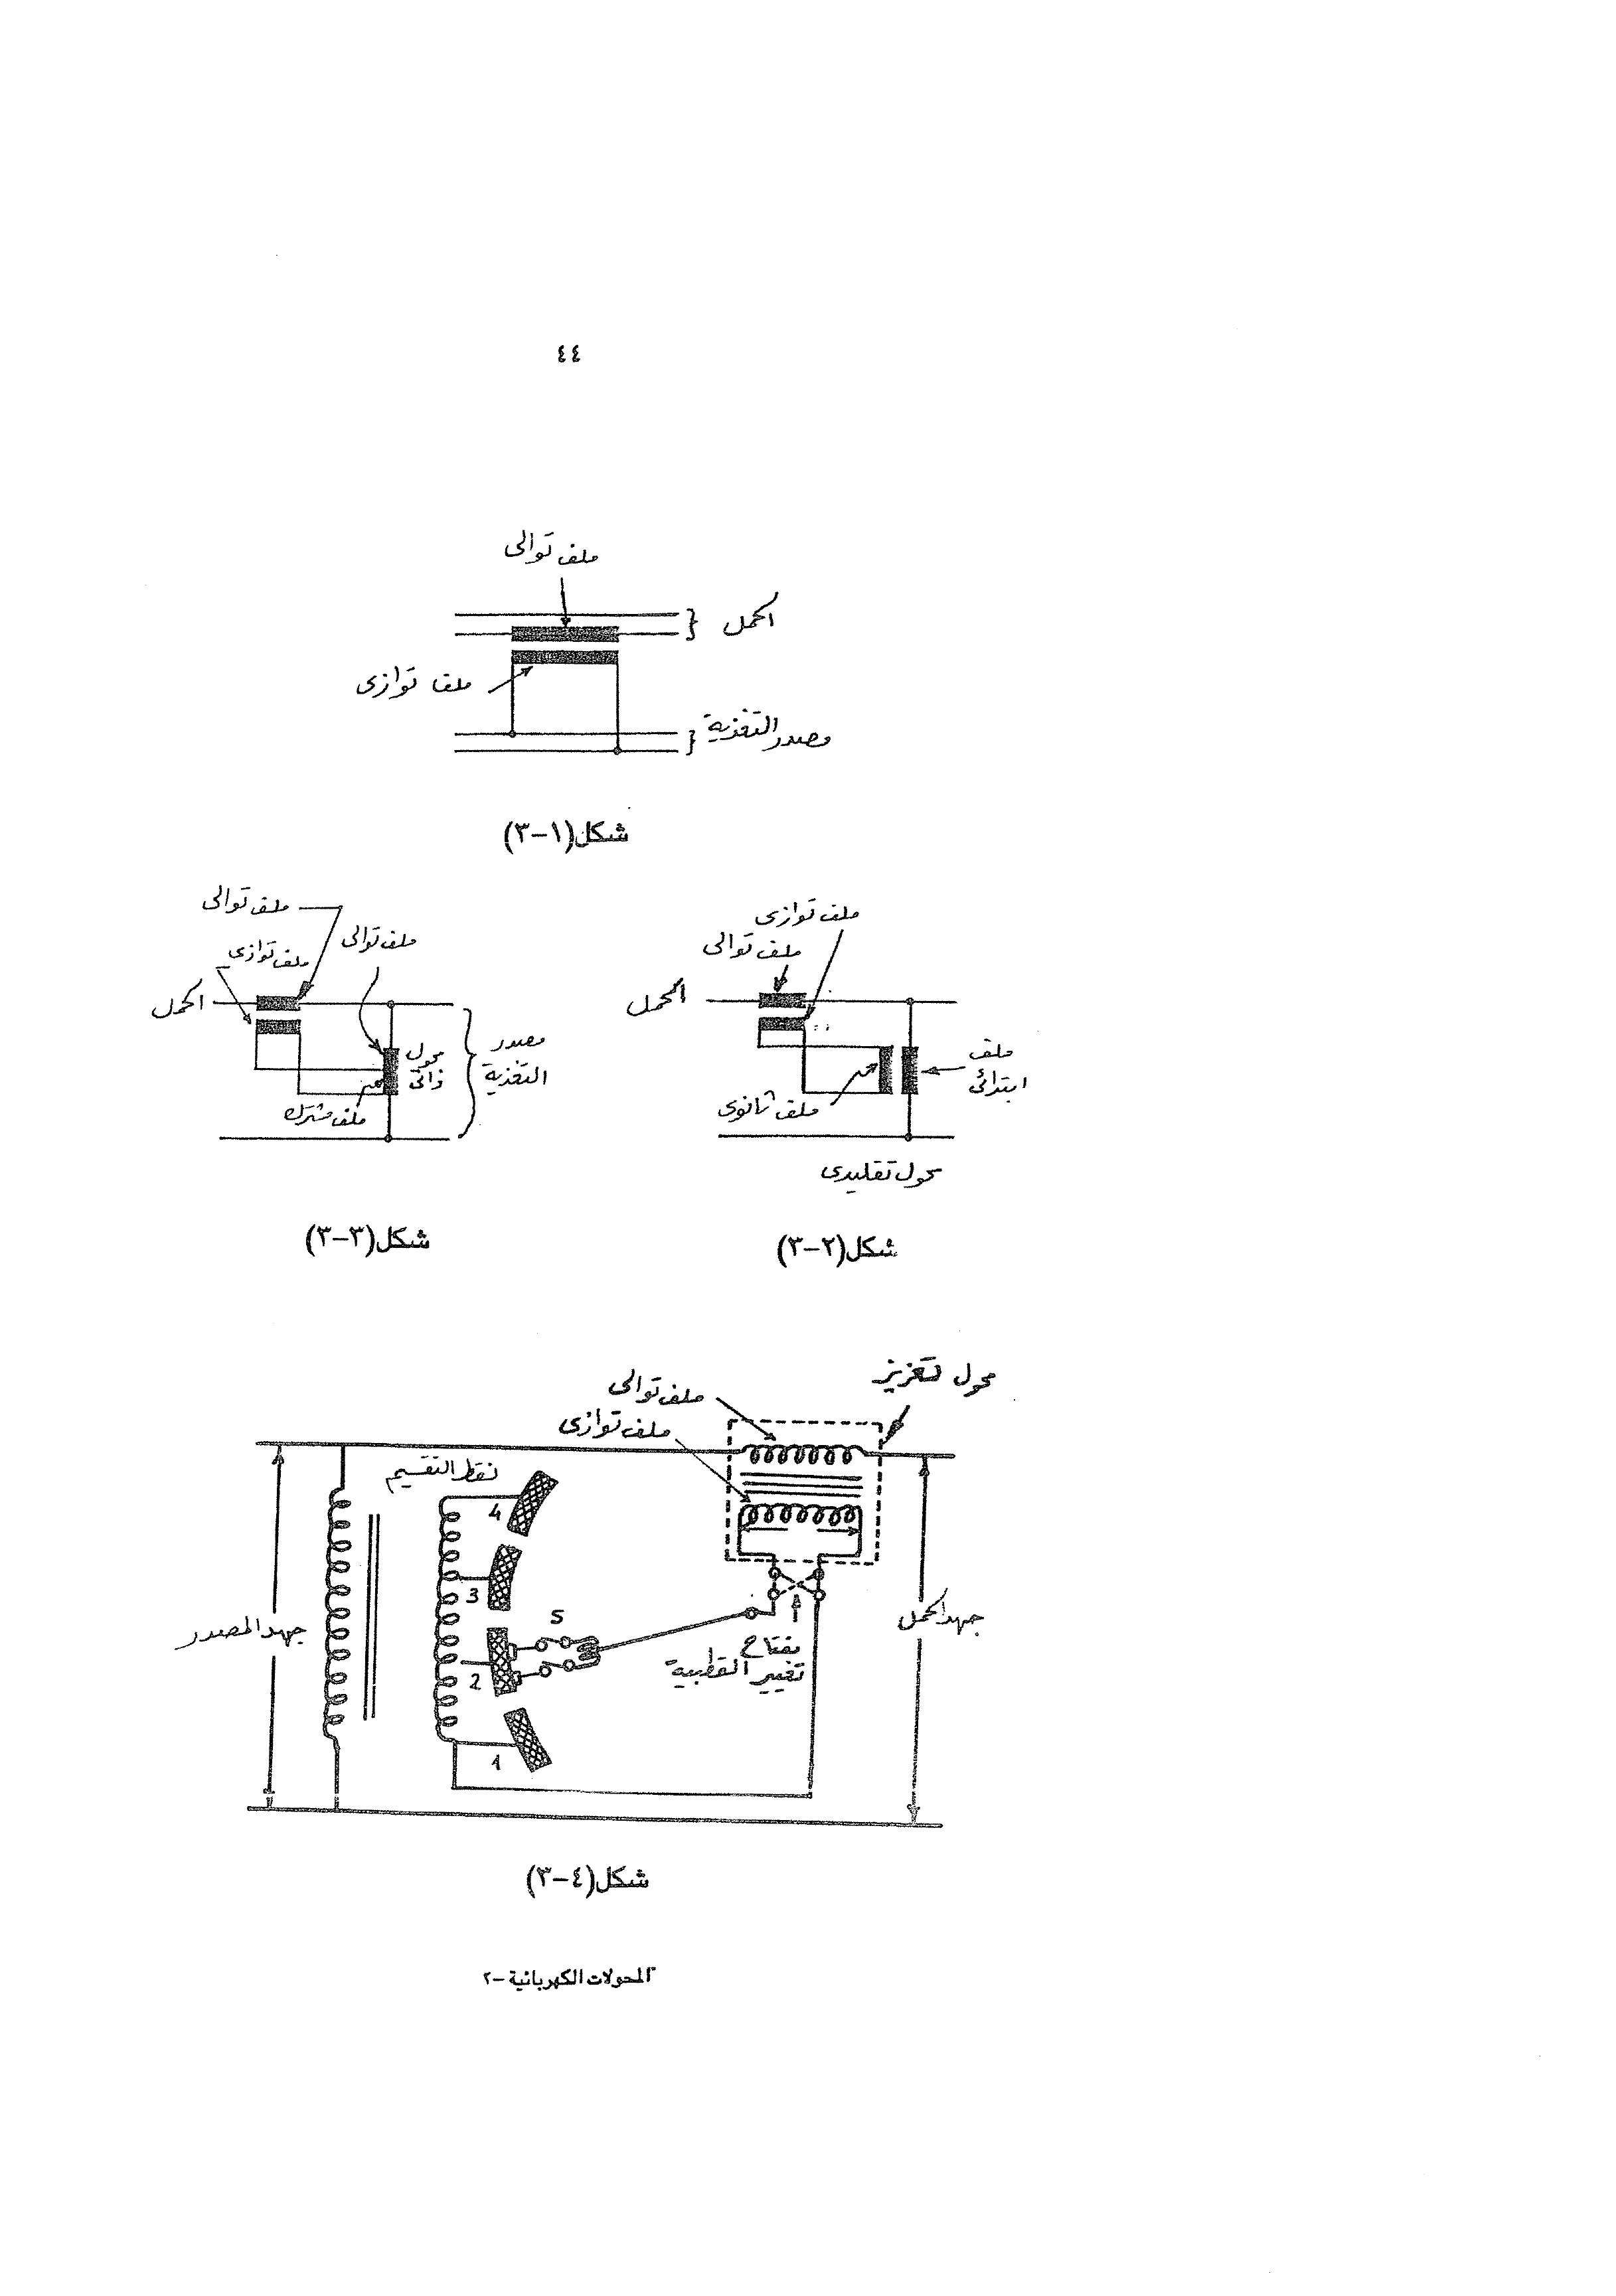 ٤٤
ملف توالى
الحمل
ملف توازى
مصدر التغذية
شكل(١-٣)
ملف توازى
ملف توالى
الحمل
ملف
ابتدائى
ملف ثانوى
محول تقليدى
شكل(٢-٣)
ملف توالى
ملف توالى
ملف توازى
الحمل
مصدر
التغذية
محول
ذاتى
ملف مشترك
شكل(٣-٣)
محول تعزيز
ملف توالى
ملف توازى
نقط التقسيم
4
3
S
2
1
جهد المصدر
جهد الحمل
مفتاح
تغيير القطبية
شكل(٤-٣)
المحولات الكهربائية -٢